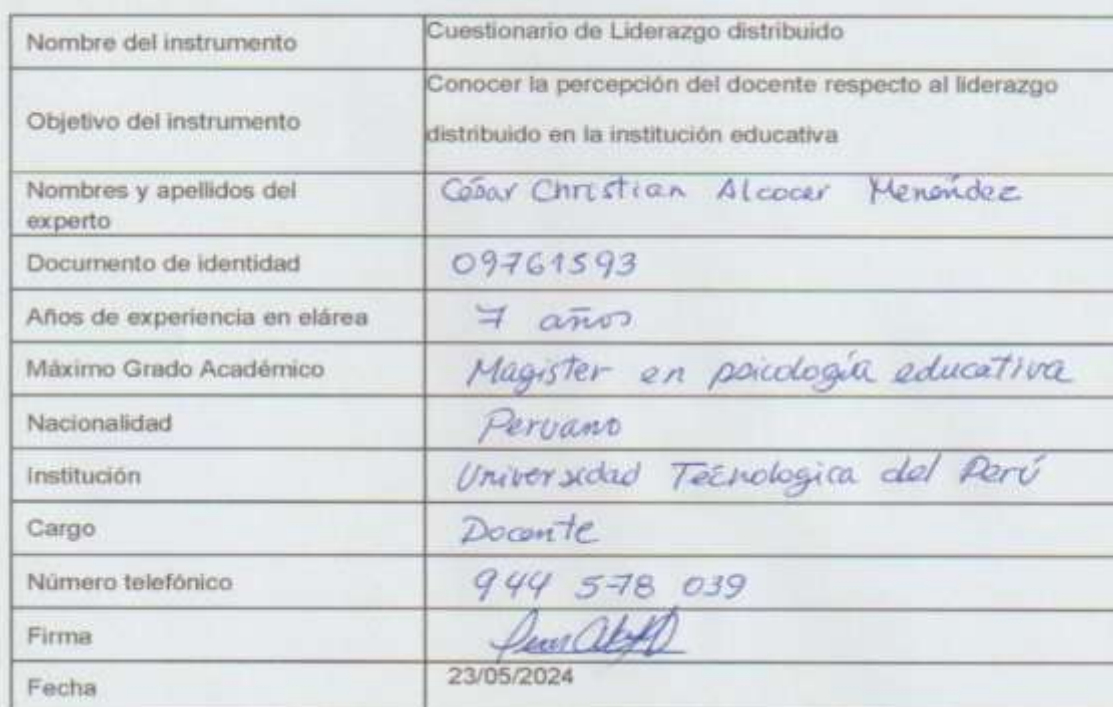 Nombre del instrumento
Cuestionario de Liderazgo distribuido
Objetivo del instrumento
Conocer la percepción del docente respecto al liderazgo
distribuido en la institución educativa
Nombres y apellidos del
experto
César Christian Alcocer Menéndez
Documento de identidad
09761593
Años de experiencia en elárea
7 años
Máximo Grado Académico
Magister en psicología educativa
Nacionalidad
Peruano
Institución
Universidad Técnologica del Perú
Cargo
Docente
Número telefónico
944 578 039
Firma
Fecha
23/05/2024